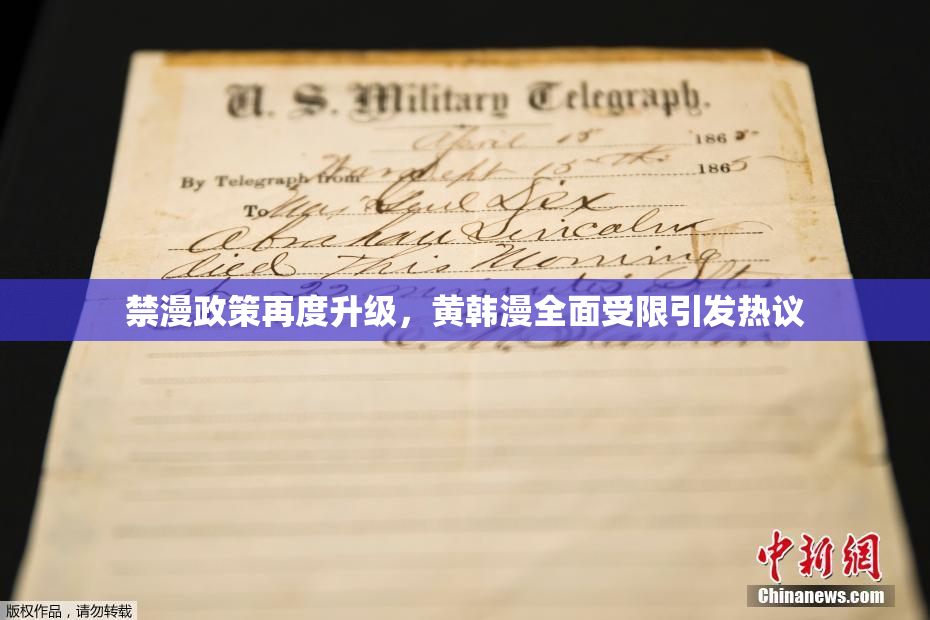 U. S. Military Telegraph.
April 15 1865
By Telegraph from War Dept 15th 1865
To Maj Genl Dix
Abraham Lincoln
died This Morning
at 22 minutes after
禁漫政策再度升级，黄韩漫全面受限引发热议
中新网
Chinanews.com
版权作品，请勿转载